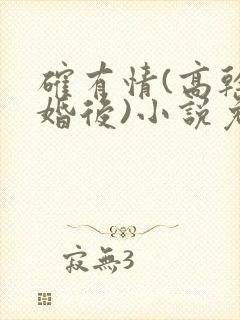 確有情(高幹
婚後)小說免
寂無3